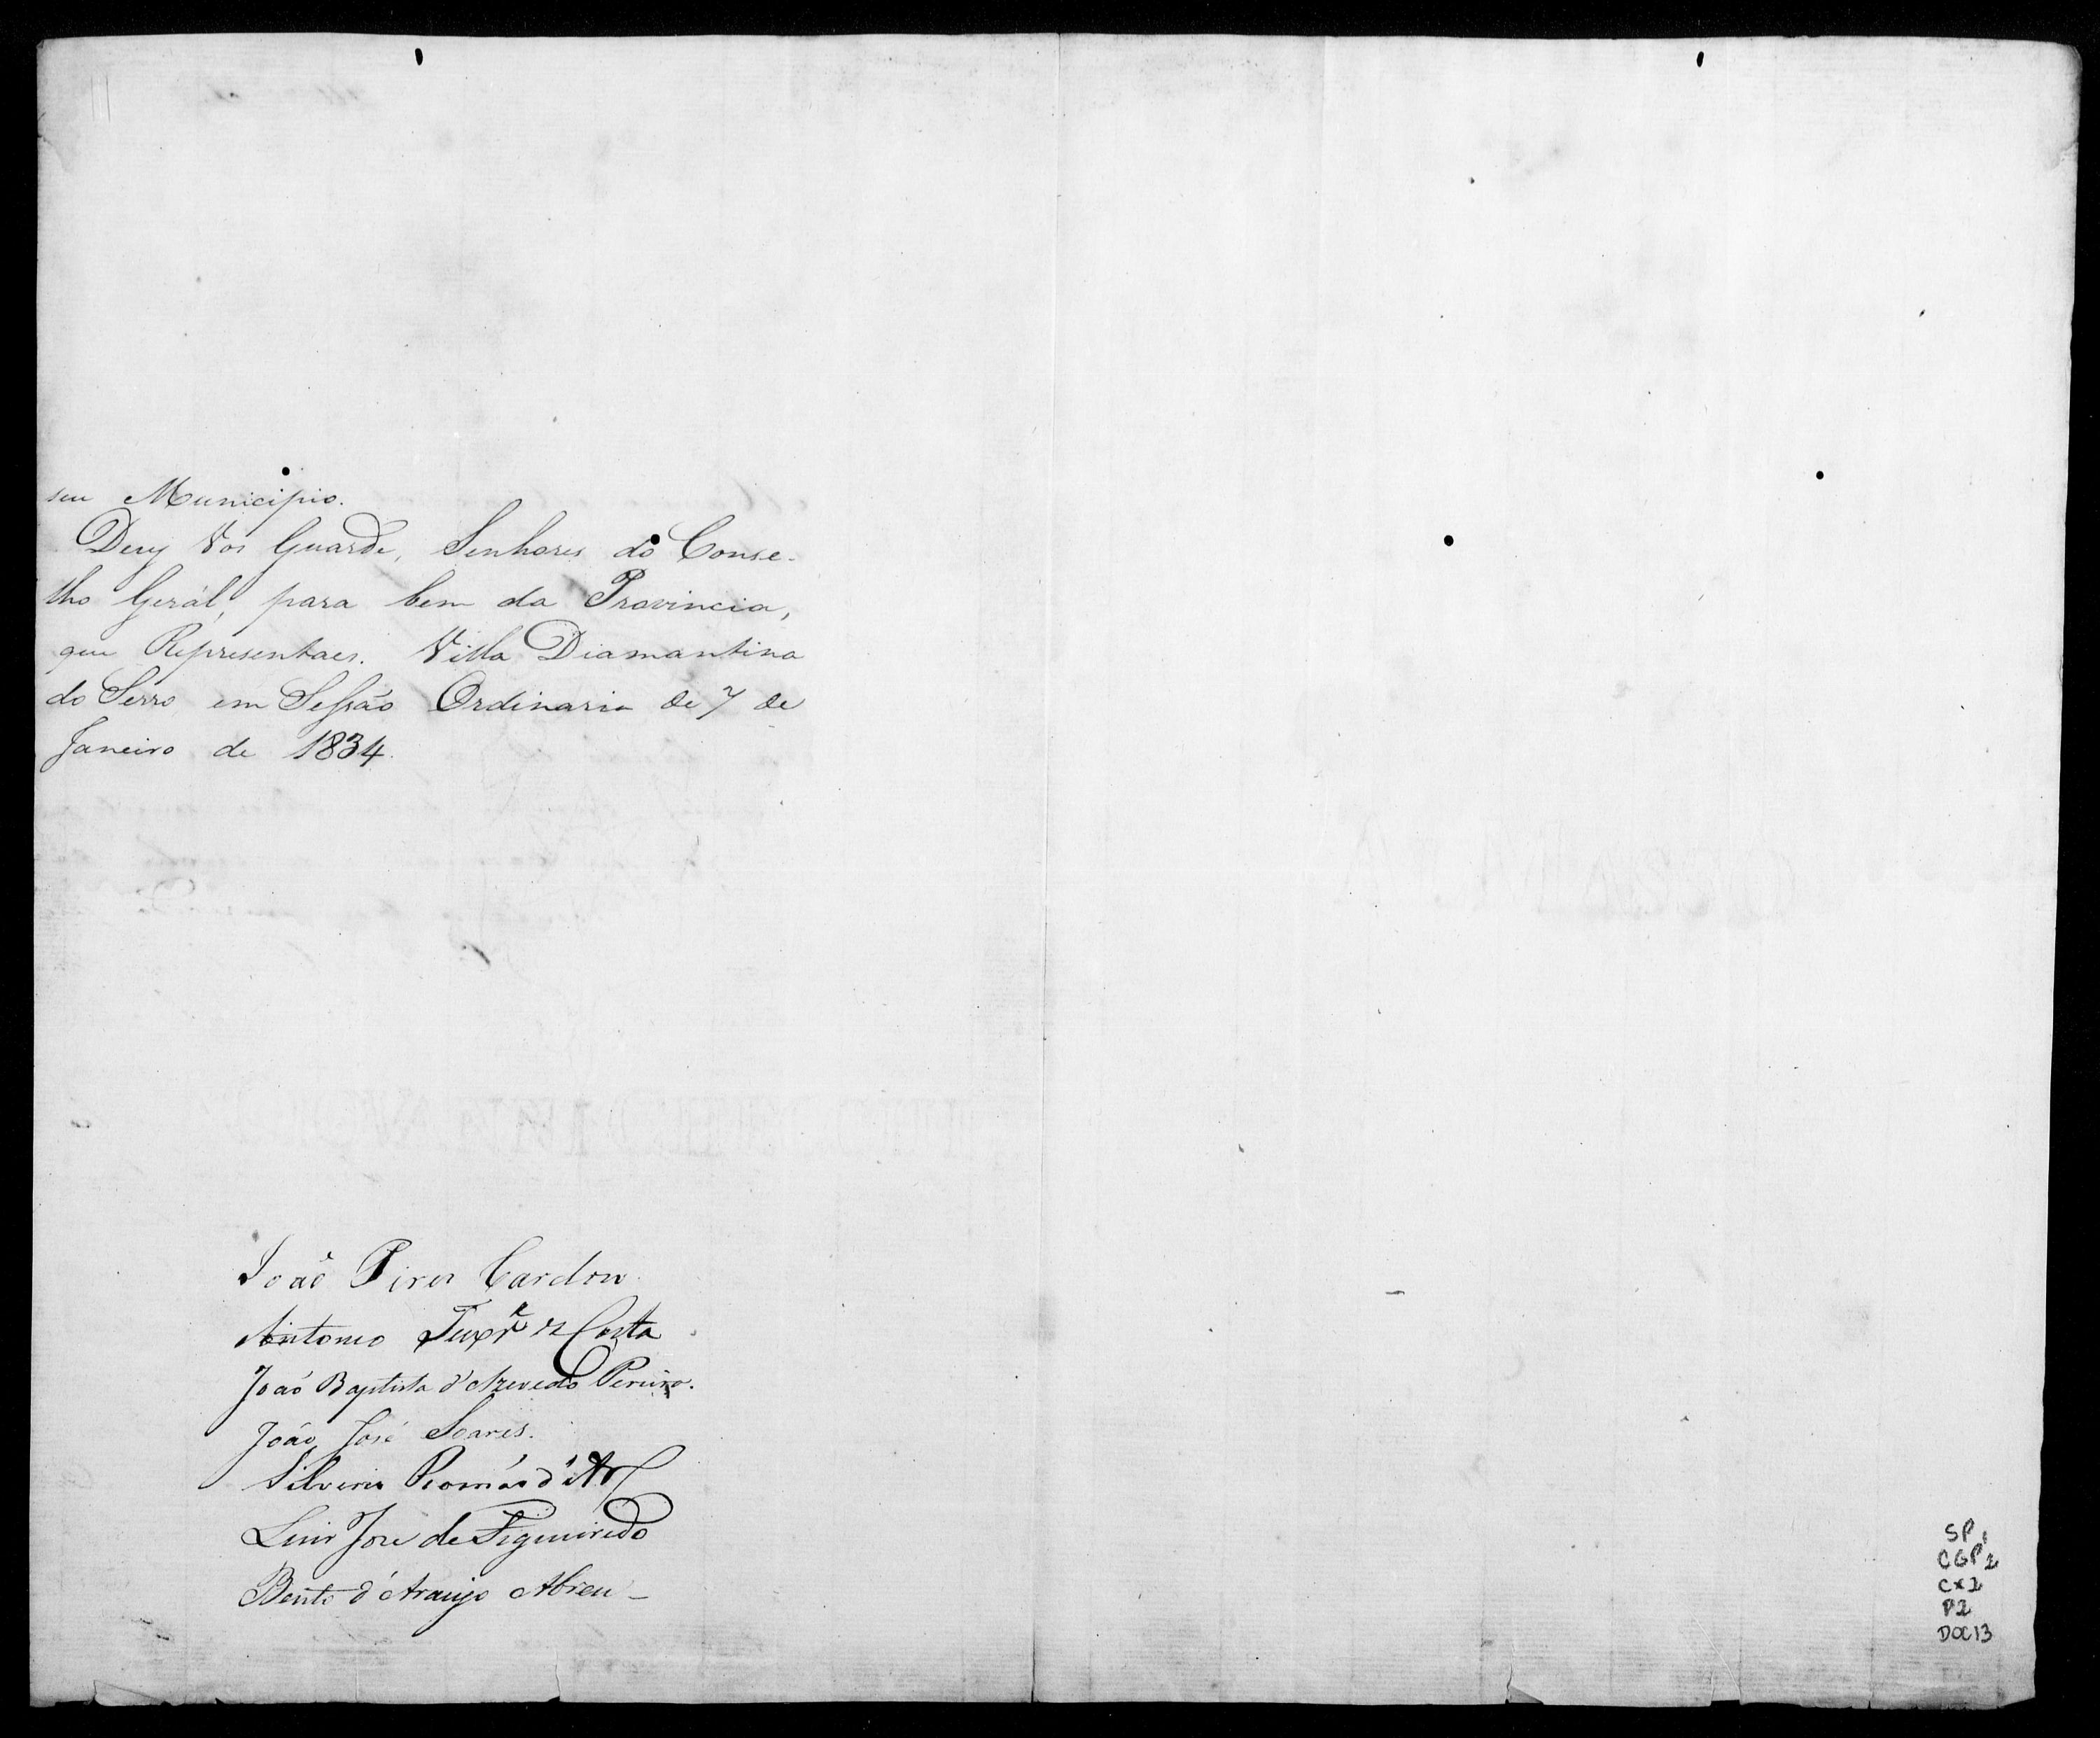 seu Municipio.
Deos Vos Guarde, Senhores do Conse-
lho Gerál, para bem da Provincia,
que Representaes. Villa Diamantina
do Serro em Sessão Ordinaria de 7 de
Janeiro de 1834.
João Pires Cardoso
Antonio Costa
João Baptista d'Azevedo Pereira.
João José Soares.
Silverio Romão d'
Luis Jose de Figueiredo
Bento d'Araujo Abreu
SP
CGP 1
Cx 2
P2
DOC 13